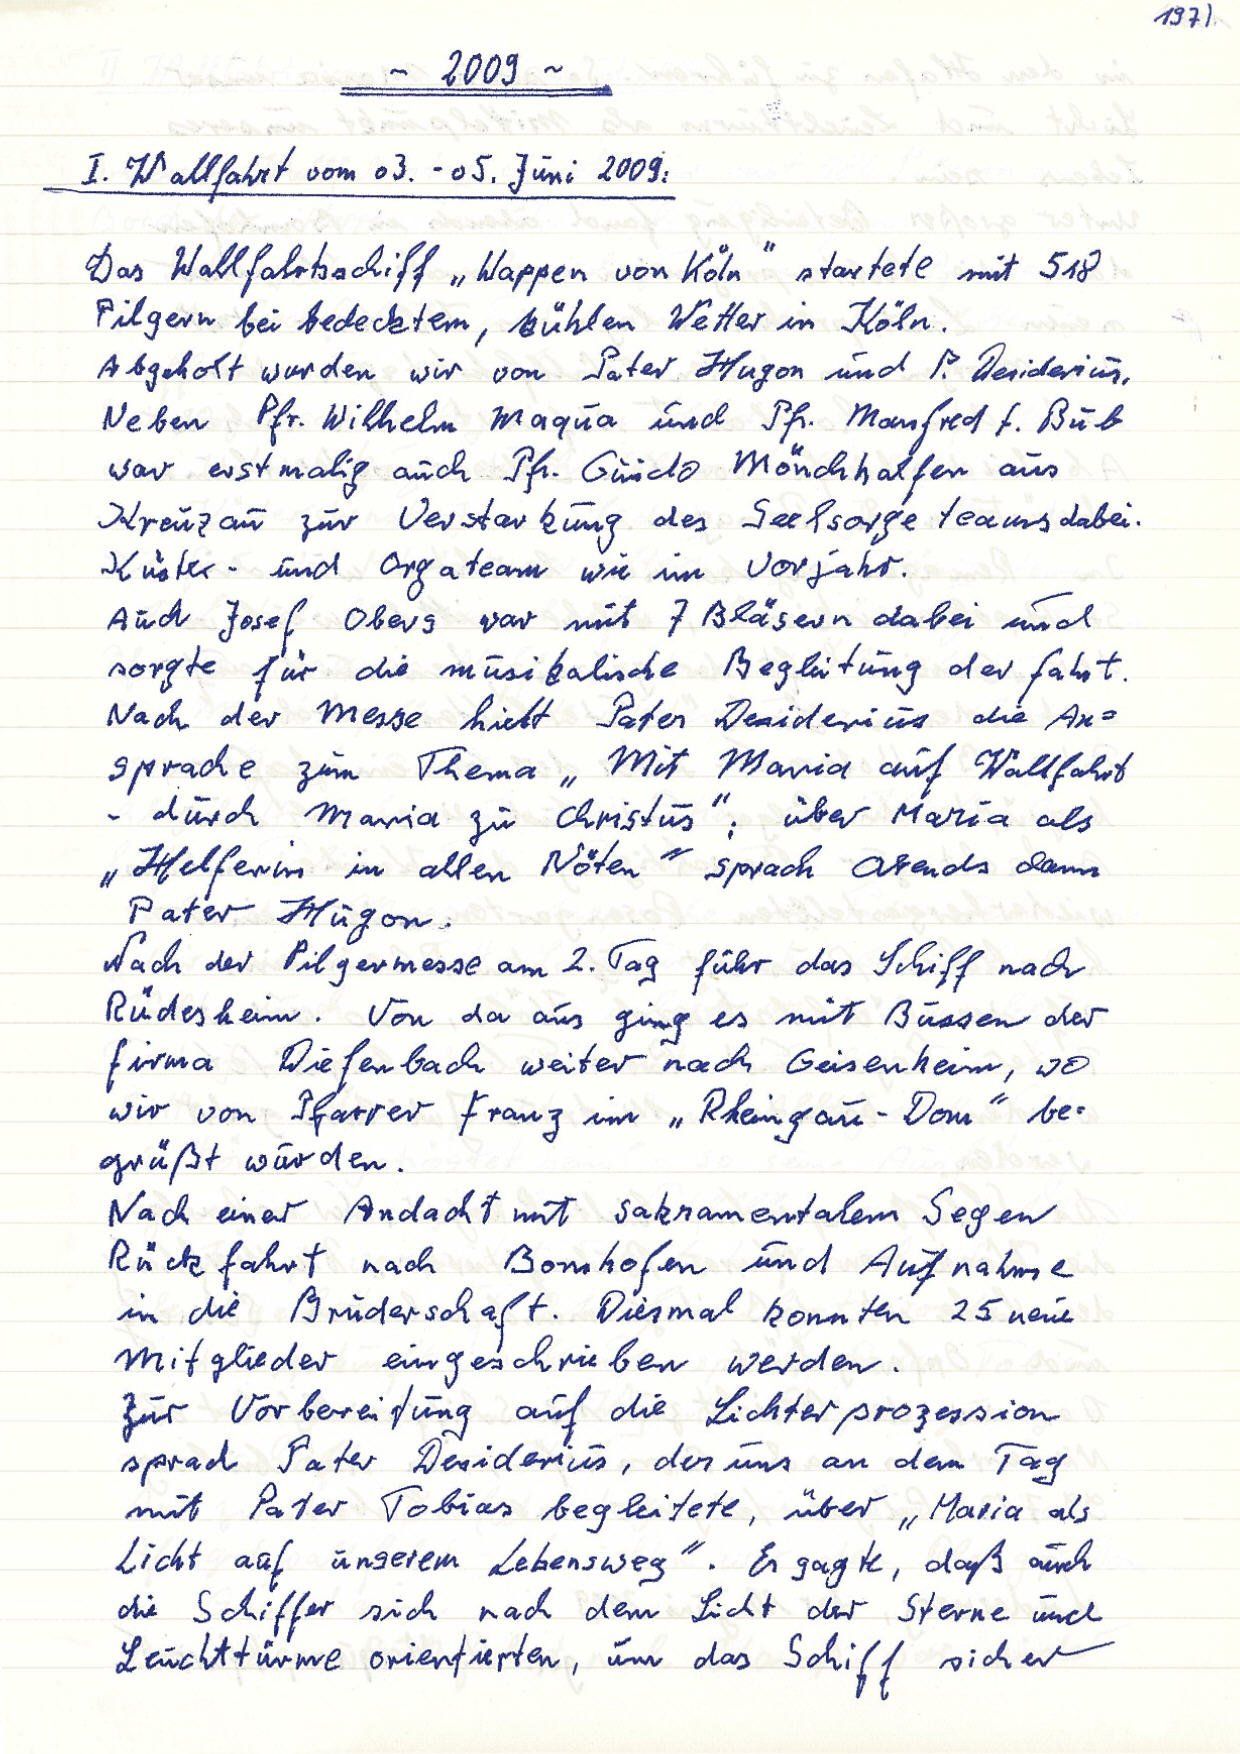 197).
~ 2009 ~
I. Wallfahrt vom 03. - 05. Juni 2009:
Das Wallfahrtsschiff „Wappen von Köln" startete mit 518
Pilgern bei bedecktem, kühlen Wetter in Köln.
Abgeholt wurden wir von Pater Hugon und P. Desiderius.
Neben Pfr. Wilhelm Maqua und Pfr. Manfred f. Bub
war erstmalig auch Pfr. Guido Mönchhalfen aus
Kreuzau zur Verstarkung des Seelsorgeteams dabei.
Küster- und Orgateam wie im Vorjahr.
Auch Josef Obers war mit 7 Bläsern dabei und
sorgte für die musikalische Begleitung der fahrt.
Nach der Messe hielt Pater Desiderius die An=
sprache zum Thema „Mit Maria auf Wallfahrt
- durch Maria zu Christus"; über Maria als
„Helferin in allen Nöten" sprach abends dann
Pater Hugon.
Nach der Pilgermesse am 2. Tag fuhr das Schiff nach
Rüdesheim. Von da aus ging es mit Bussen der
firma Diefenbach weiter nach Geisenheim, wo
wir von Pfarrer Franz im „Rheingau-Dom" be=
grüßt wurden.
Nach einer Andacht mit sakramentalem Segen
Rückfahrt nach Bornhofen und Aufnahme
in die Bruderschaft. Diesmal konnten 25 neue
Mitglieder eingeschrieben werden.
Zur Vorbereitung auf die Lichterprozession
sprach Pater Desiderius, der uns an dem Tag
mit Pater Tobias begleitete, über „Maria als
Licht auf unserem Lebensweg". Er sagte, daß auch
die Schiffer sich nach dem Licht der Sterne und
Leuchttürme orientierten, um das Schiff sicher